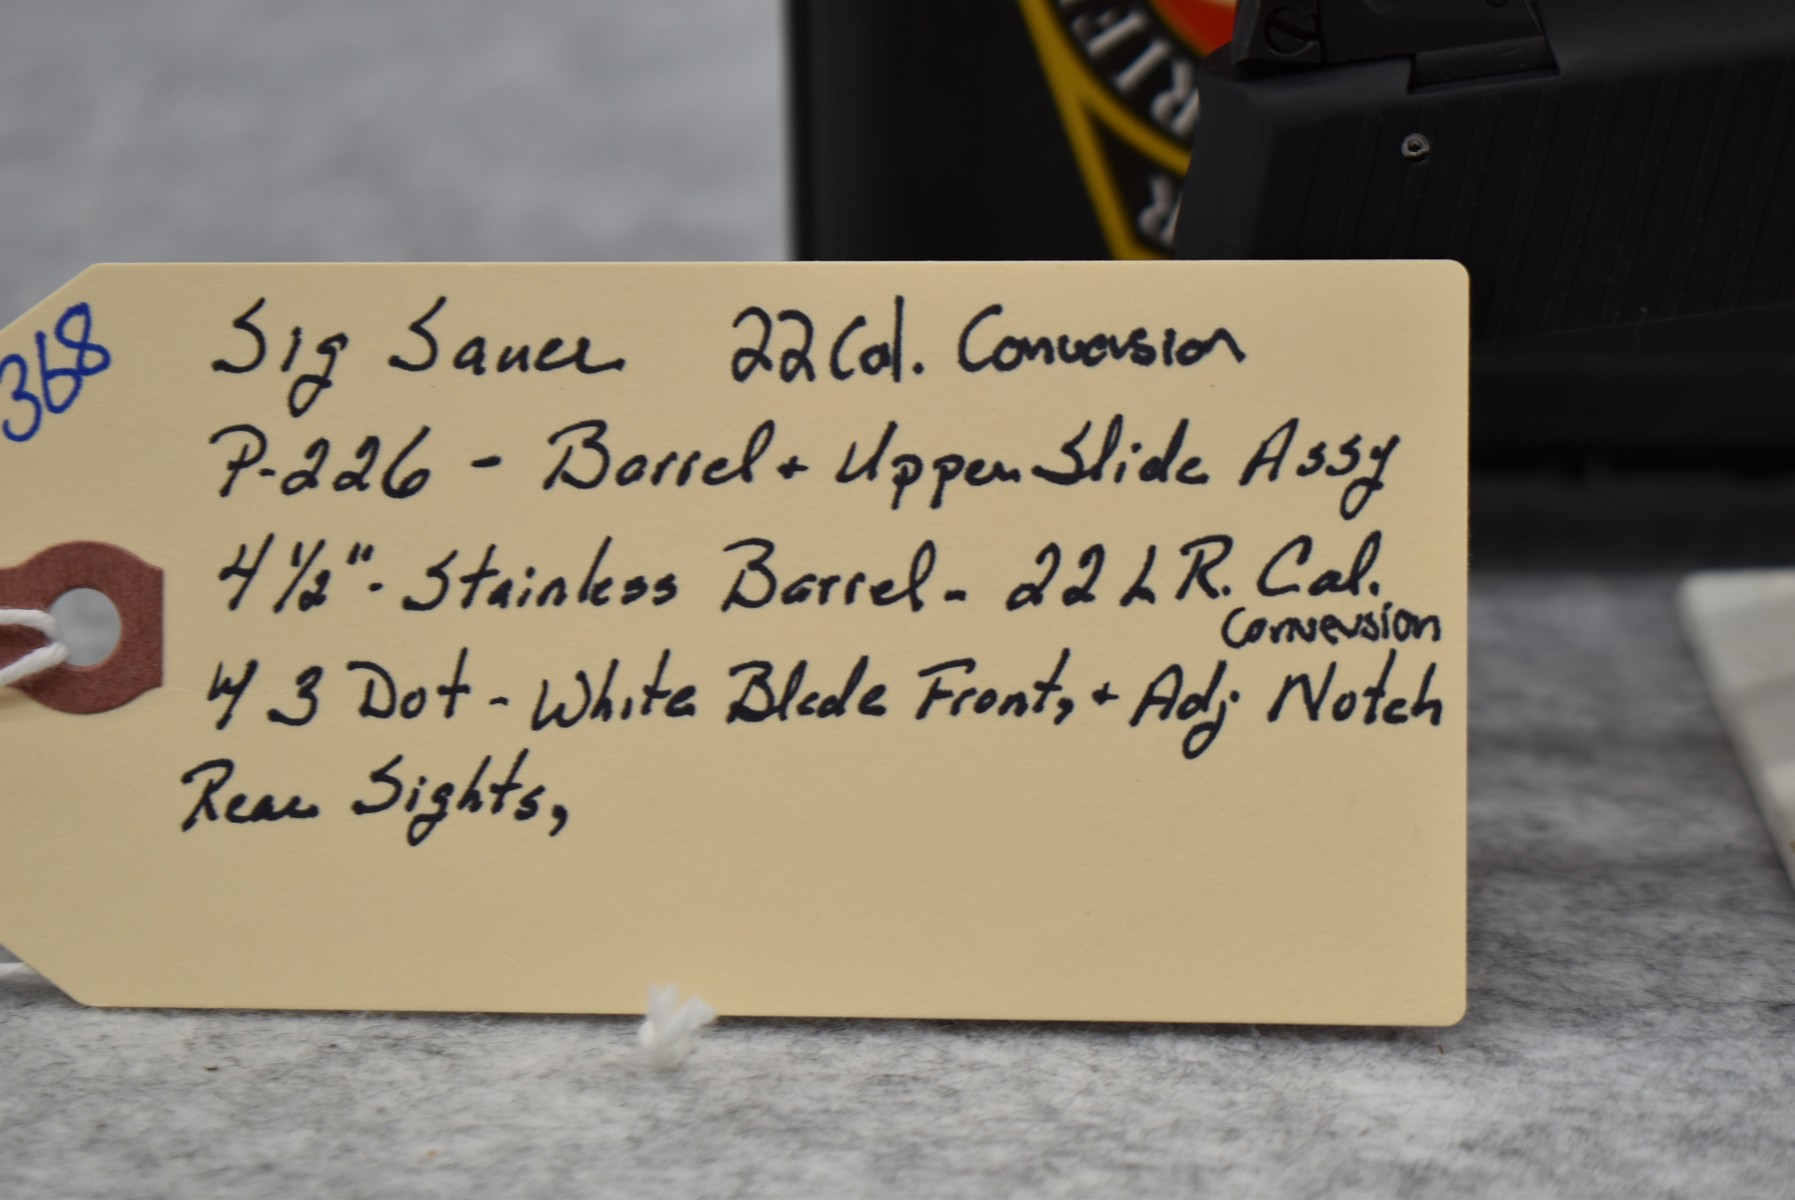 RIF
R
368
Sig Sauer 22 Cal. Conversion
P-226 - Barrel + Upper Slide Assy
4 1/2" - Stainless Barrel - 22 L R. Cal.
Conversion
W 3 Dot - White Blade Front, + Adj Notch
Rear Sights,